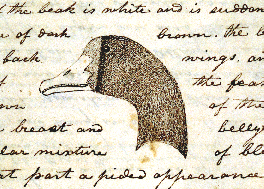 of the beak is white and is sudden
of dark brown. the b
back wings, an
the fea
of the
breast and belly
lar mixture of bl
part a pided appearance